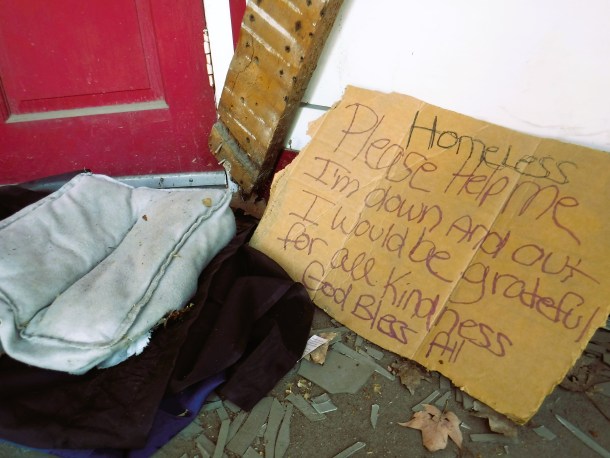 Homeless
Please Help me
I'm down And out
I would be grateful
for all Kindness
God Bless All